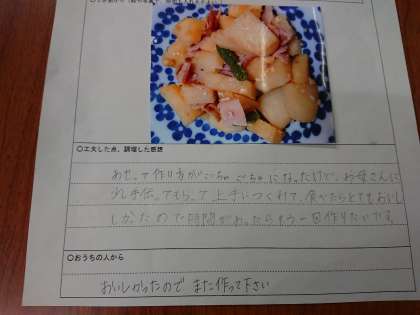 〇工夫した点、調理した感想
あせって作り方がごちゃごちゃになったけど、お母さんに
少し手伝ってもらって上手につくれて、食べたらとてもおい
しかたので時間があったらもう一回作りたいです。
〇おうちの人から
おいしかったので また作って下さい